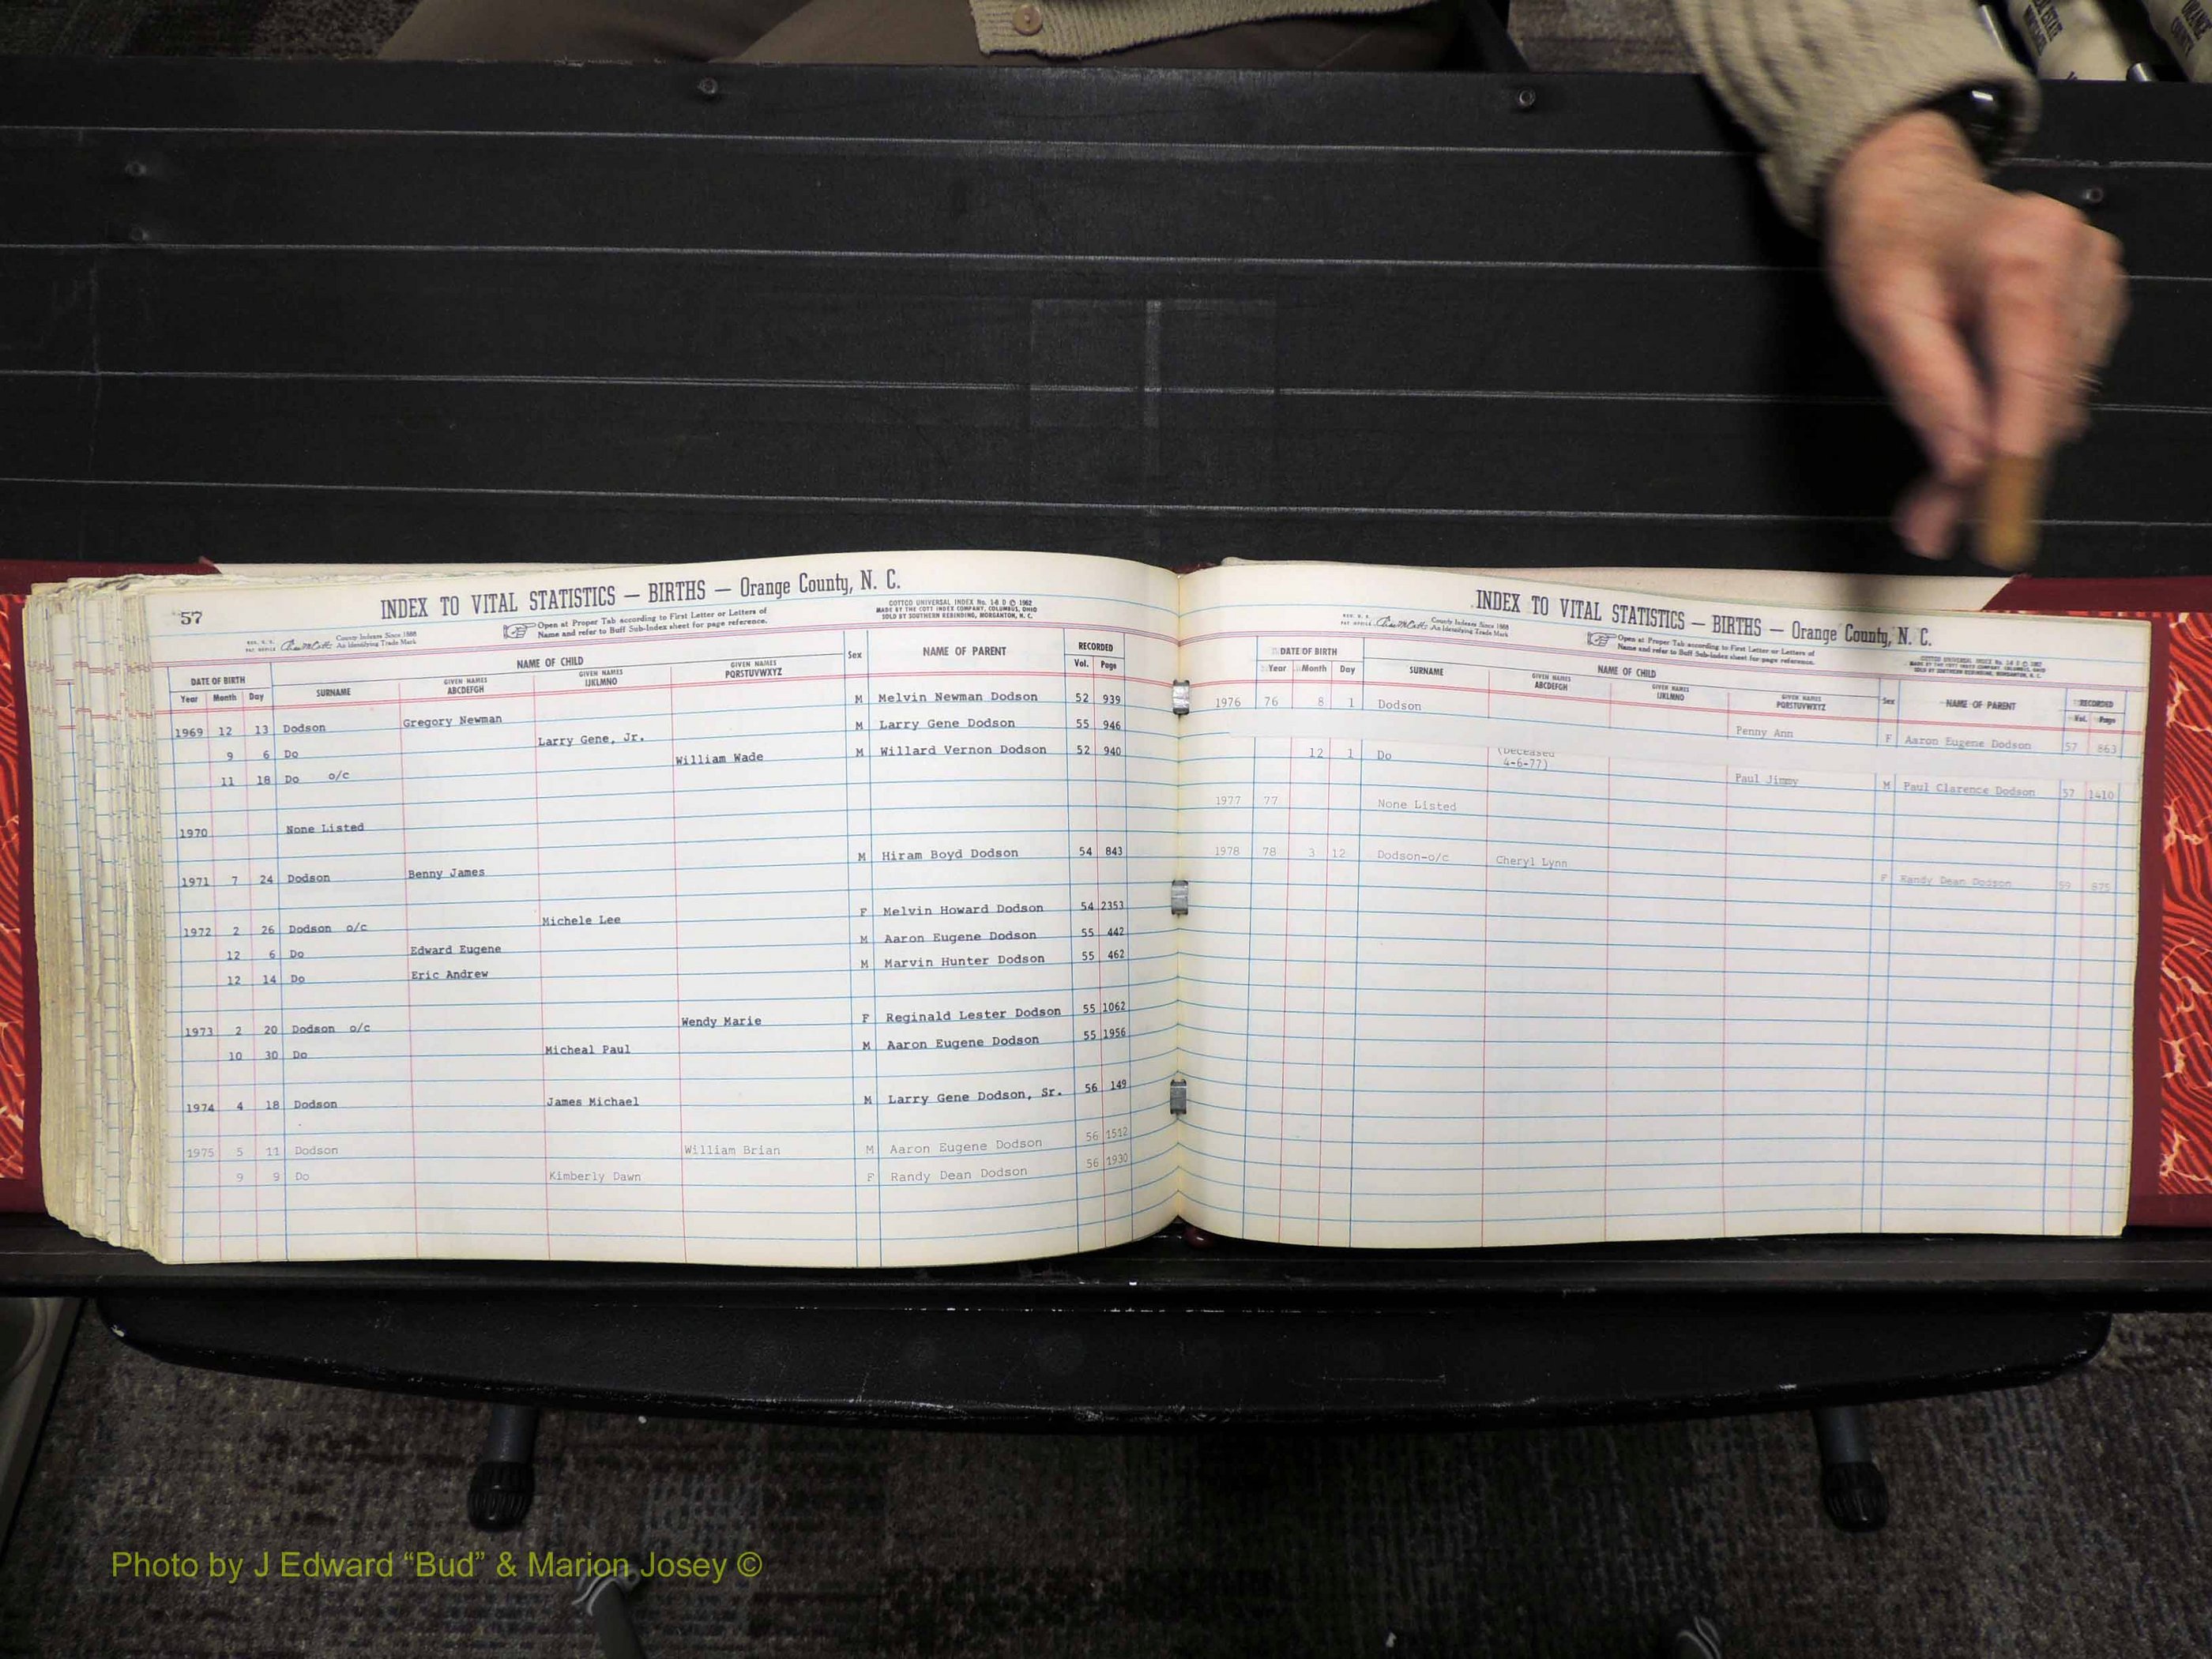 57
INDEX TO VITAL STATISTICS — BIRTHS — Orange County, N. C.
COTTCO UNIVERSAL INDEX No. 1-8 D © 1962
MADE BY THE COTT INDEX COMPANY, COLUMBUS, OHIO
SOLD BY SOUTHERN REBINDING, MORGANTON, N. C.
County Indexes Since 1888
An Identifying Trade Mark
Open at Proper Tab according to First Letter or Letters of
Name and refer to Buff Sub-Index sheet for page reference.
DATE OF BIRTH NAME OF CHILD Sex NAME OF PARENT RECORDED
Year Month Day SURNAME GIVEN NAMES ABCDEFGH GIVEN NAMES IJKLMNO GIVEN NAMES PQRSTUVWXYZ Vol. Page
1969 12 13 Dodson Gregory Newman M Melvin Newman Dodson 52 939
9 6 Do Larry Gene, Jr. M Larry Gene Dodson 55 946
11 18 Do o/c William Wade M Willard Vernon Dodson 52 940
1970 None Listed
1971 7 24 Dodson Benny James M Hiram Boyd Dodson 54 843
1972 2 26 Dodson o/c Michele Lee F Melvin Howard Dodson 54 2353
12 6 Do Edward Eugene M Aaron Eugene Dodson 55 442
12 14 Do Eric Andrew M Marvin Hunter Dodson 55 462
1973 2 20 Dodson o/c Wendy Marie F Reginald Lester Dodson 55 1062
10 30 Do Micheal Paul M Aaron Eugene Dodson 55 1956
1974 4 18 Dodson James Michael M Larry Gene Dodson, Sr. 56 149
1975 5 11 Dodson William Brian M Aaron Eugene Dodson 56 1512
9 9 Do Kimberly Dawn F Randy Dean Dodson 56 1930
INDEX TO VITAL STATISTICS — BIRTHS — Orange County, N. C.
County Indexes Since 1888
An Identifying Trade Mark
Open at Proper Tab according to First Letter or Letters of
Name and refer to Buff Sub-Index sheet for page reference.
DATE OF BIRTH NAME OF CHILD Sex NAME OF PARENT RECORDED
Year Month Day SURNAME GIVEN NAMES ABCDEFGH GIVEN NAMES IJKLMNO GIVEN NAMES PQRSTUVWXYZ Vol. Page
1976 76 8 1 Dodson Penny Ann F Aaron Eugene Dodson 57 863
12 1 Do (Deceased 4-6-77) Paul Jimmy M Paul Clarence Dodson 57 1410
1977 77 None Listed
1978 78 3 12 Dodson-o/c Cheryl Lynn F Randy Dean Dodson 59 875
Photo by J Edward “Bud” & Marion Josey ©